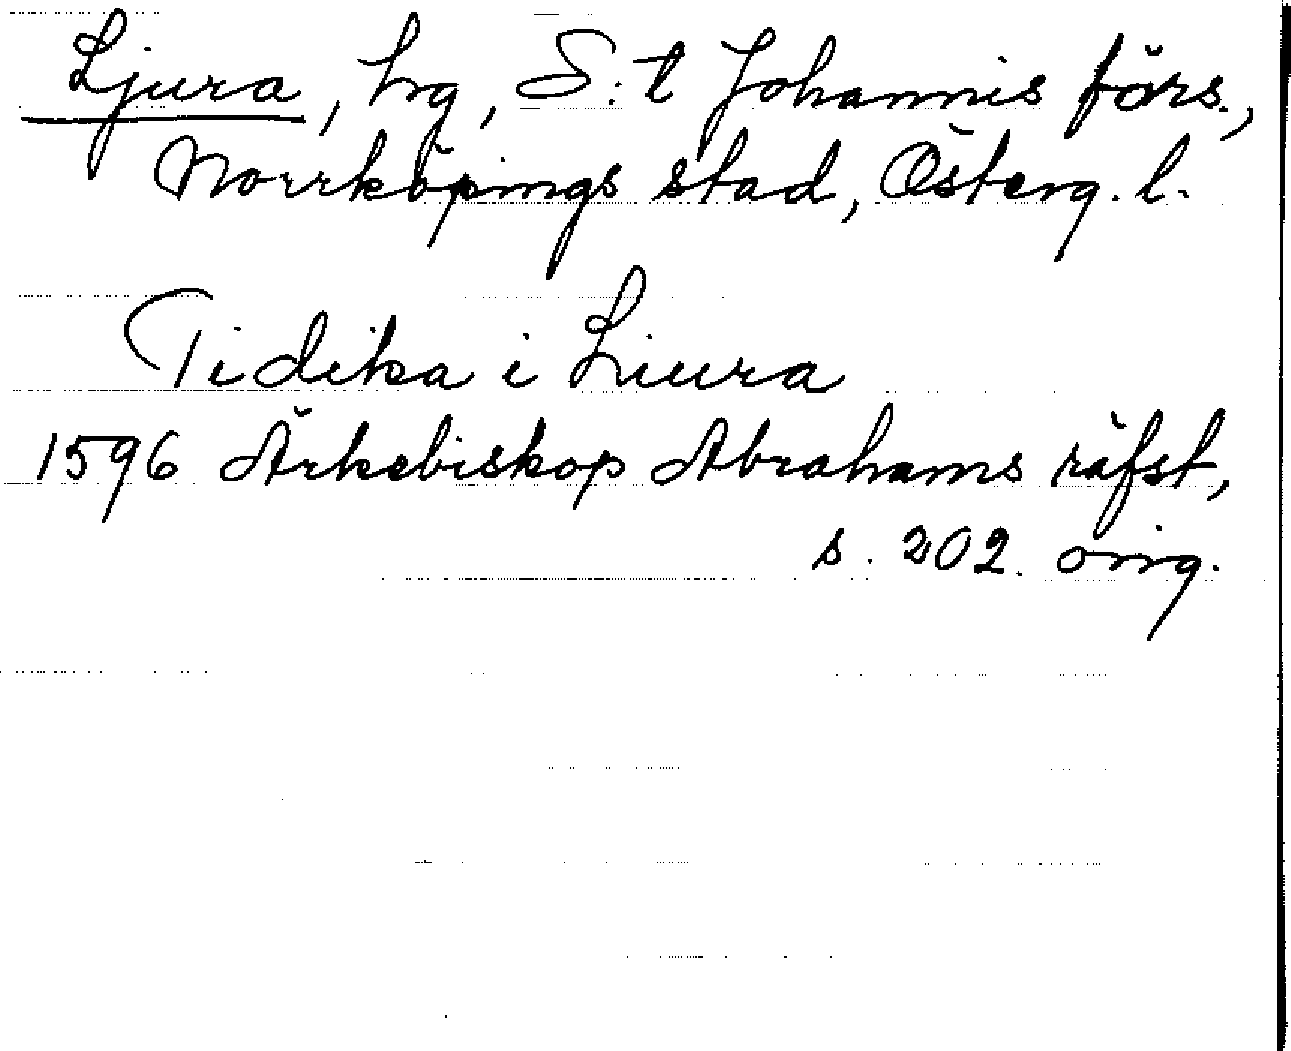 Ljura, hg, S:t Johannis förs.,
Norrköpings stad, Österg. l.
Tidika i Liura
1596 Ärkebiskop Abrahams räfst,
s. 202. orig.